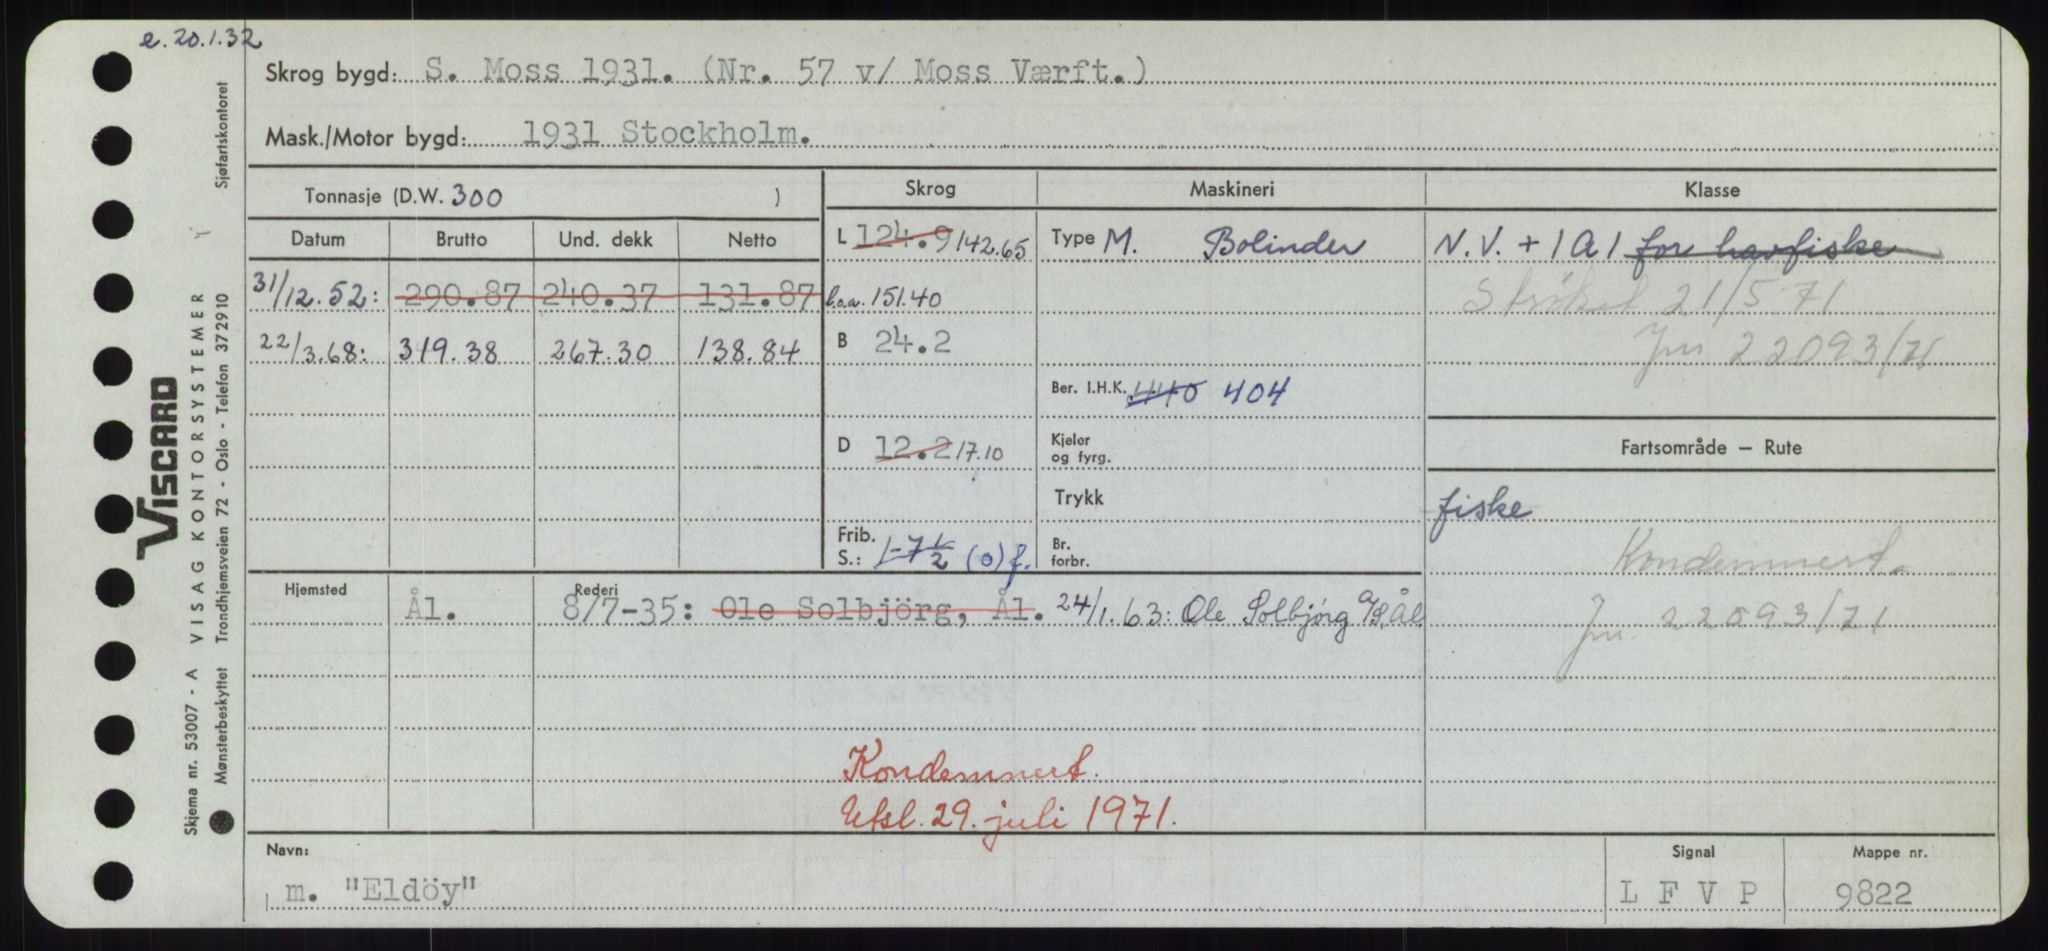 e. 20.1.32
Skrog bygd: S. Moss 1931. (Nr. 57 v/ Moss Værft.)
Mask./Motor bygd: 1931 Stockholm.
Tonnasje (D.W. 300 )
Skrog Maskineri Klasse
Datum Brutto Und. dekk Netto
L 124.9 142.65 Type M. Bolinder N.V. + 1A1 for havfiske
31/12.52: 290.87 240.37 131.87 l.o.a. 151.40 Strøket 21/5 71
22/3.68: 319.38 267.30 138.84 B 24.2 Jnr 22093/71
Ber. I.H.K. 440 404
D 12.2 17.10 Kjeler og fyrg. Fartsområde — Rute
Trykk fiske
Frib. S.: 1-7 1/2 (0) f. Br. forbr. Kondemnert.
Hjemsted Ål. Rederi 8/7-35: Ole Solbjörg, Ål. 24/1.63: Ole Solbjørg A/S, Ål Jnr. 22093/71
Kondemnert.
Utsl. 29. juli 1971.
Navn: m. "Eldöy" Signal L F V P Mappe nr. 9822
VISCARD
Skjema nr. 53007 - A VISAG KONTORSYSTEMER
Mønsterbeskyttet Trondhjemsveien 72 - Oslo - Telefon 372910 Sjøfartskontoret